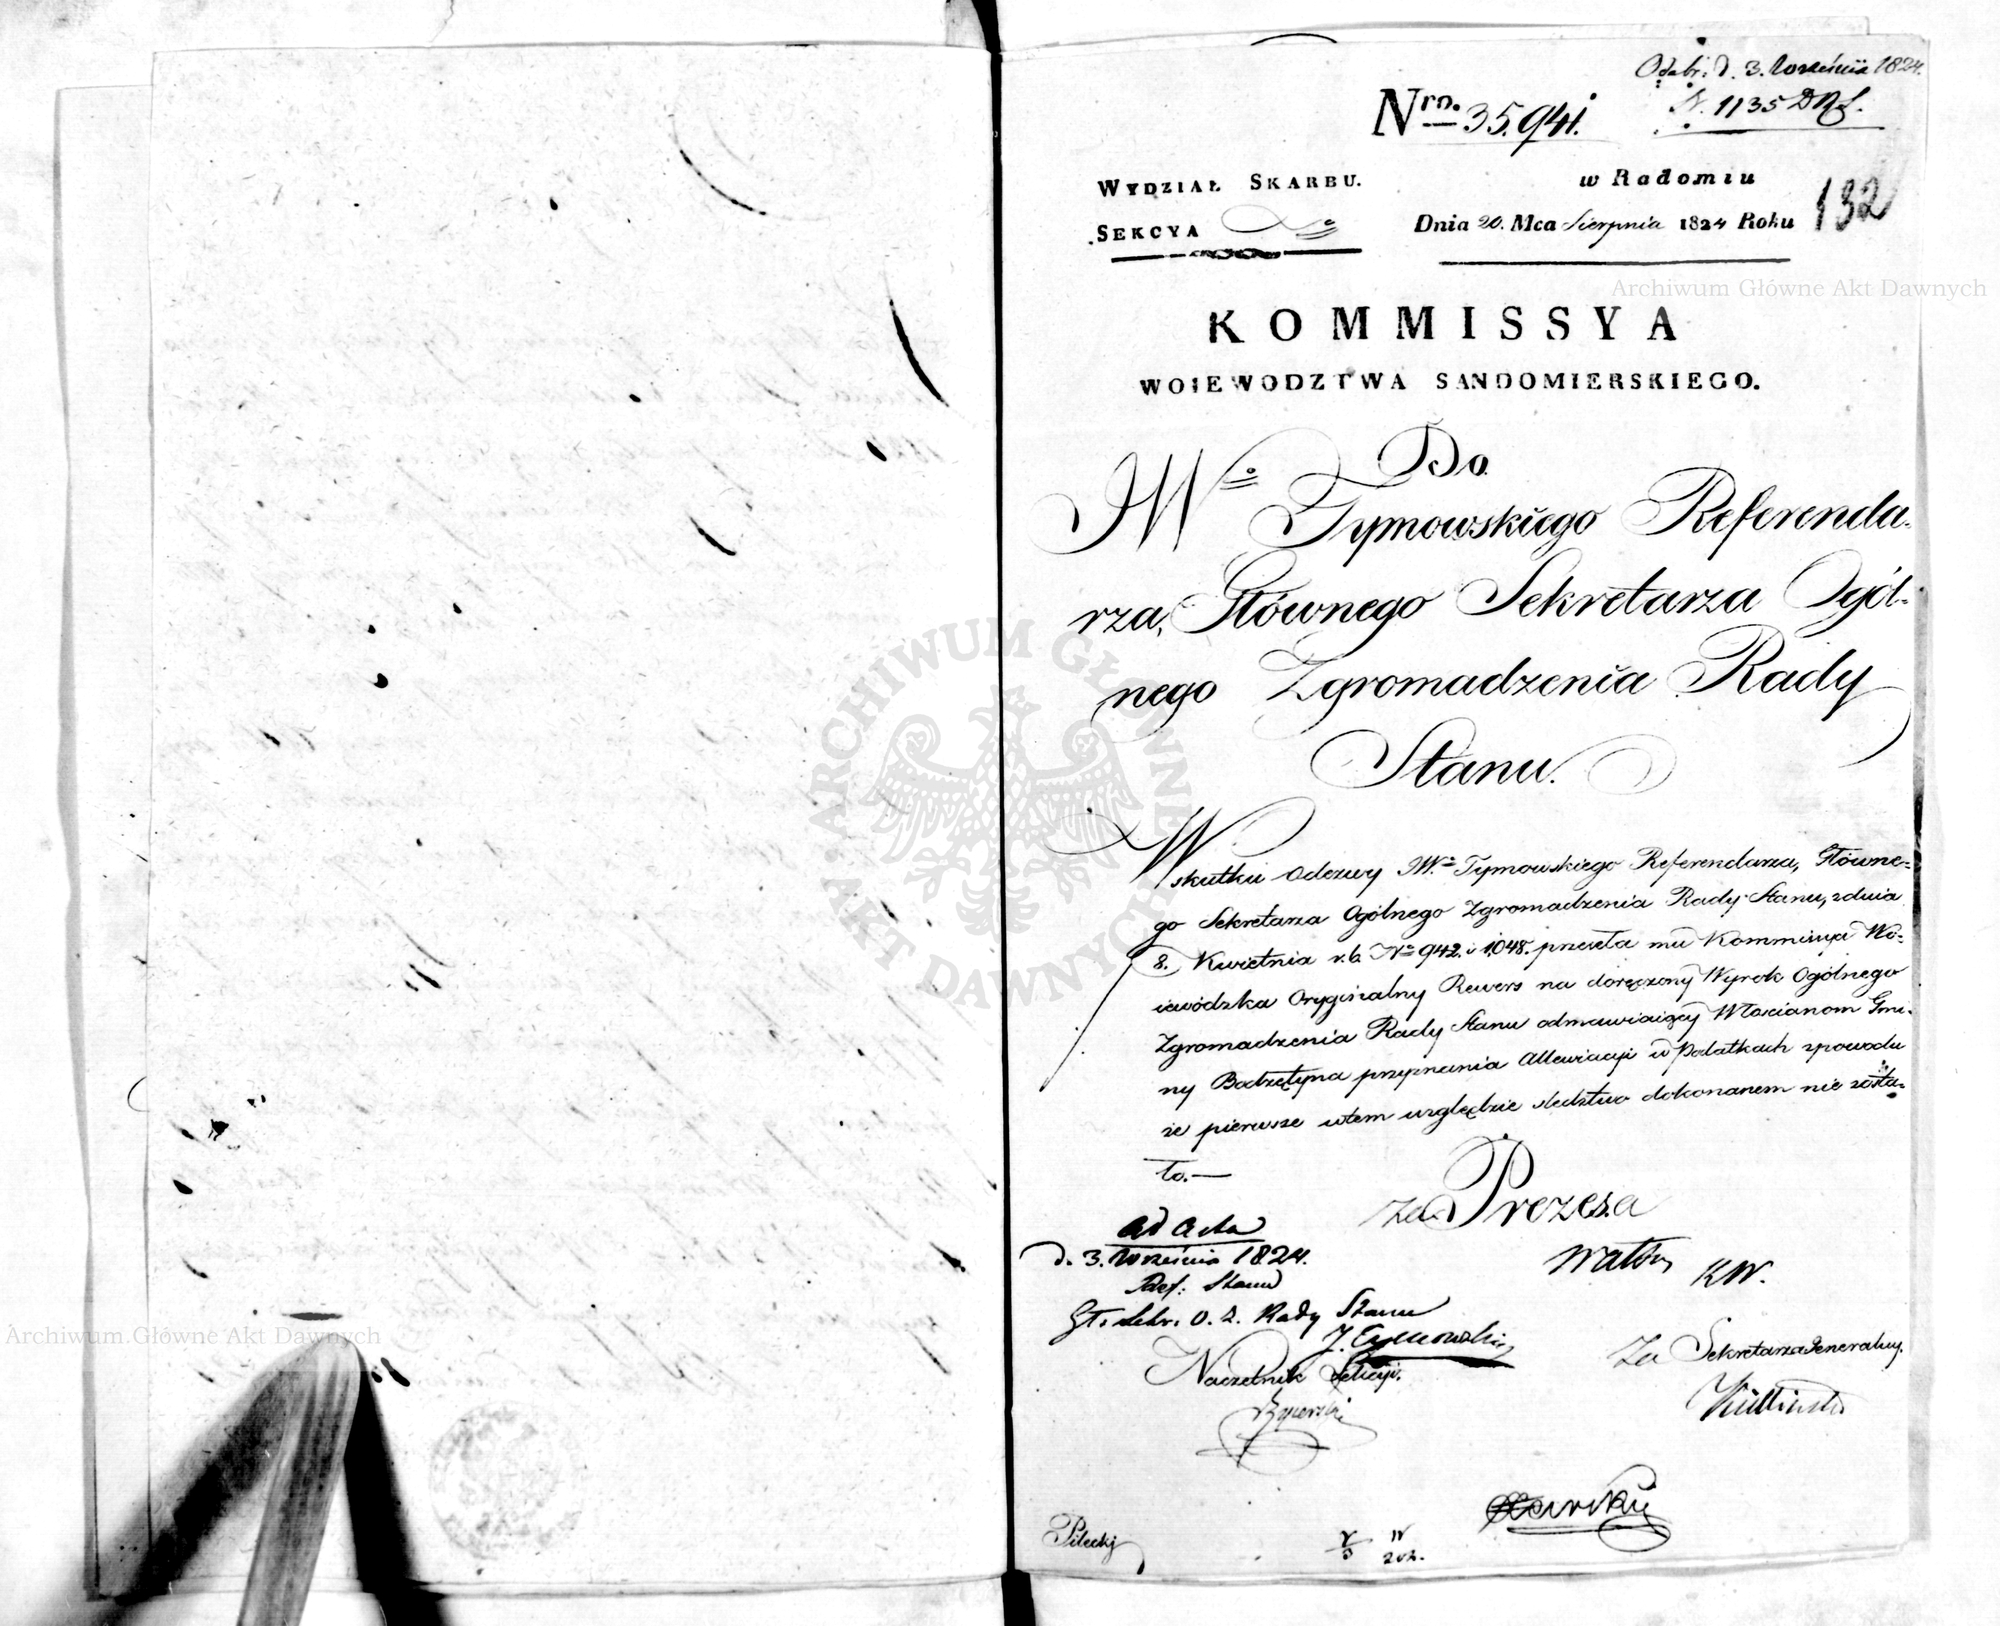 Odebr. d. 3. Września 1824.
N. 1135 DRS.
Nro. 35.941.
132
WYDZIAŁ SKARBU.
SEKCYA
w Radomiu
Dnia 20. Mca Sierpnia 1824 Roku
KOMMISSYA
WOIEWODZTWA SANDOMIERSKIEGO.
Do
JWo Tymowskiego Referenda-
rza, Głównego Sekretarza Ogól-
nego Zgromadzenia Rady
Stanu.
Wskutku Odezwy JWo Tymowskiego Referendarza, Główne-
go Sekretarza Ogólnego Zgromadzenia Rady Stanu, zdnia
8. Kwietnia r.b. No 942. i 1048. przeseła mu Kommissya Wo-
iewódzka Oryginalny Rewers na doręczony Wyrok Ogólnego
Zgromadzenia Rady Stanu odmawiaiący Włościanom Gmi-
ny Bodzętyna przyznania Allewiacyi w Podatkach zpowodu
że pierwsze wtem względzie śledztwo dokonanem nie zosta-
ło.—
Za Prezesa
KW.
ad acta
d. 3. Września 1824.
Ref: Stanu
Gł. Sekr. O. Z. Rady Stanu
J. Tymowski
Naczelnik Sekcyi.
Za Sekretarza Generalny.
Pilecki
Archiwum Główne Akt Dawnych
Archiwum Główne Akt Dawnych
ARCHIWUM GŁÓWNE AKT DAWNYCH